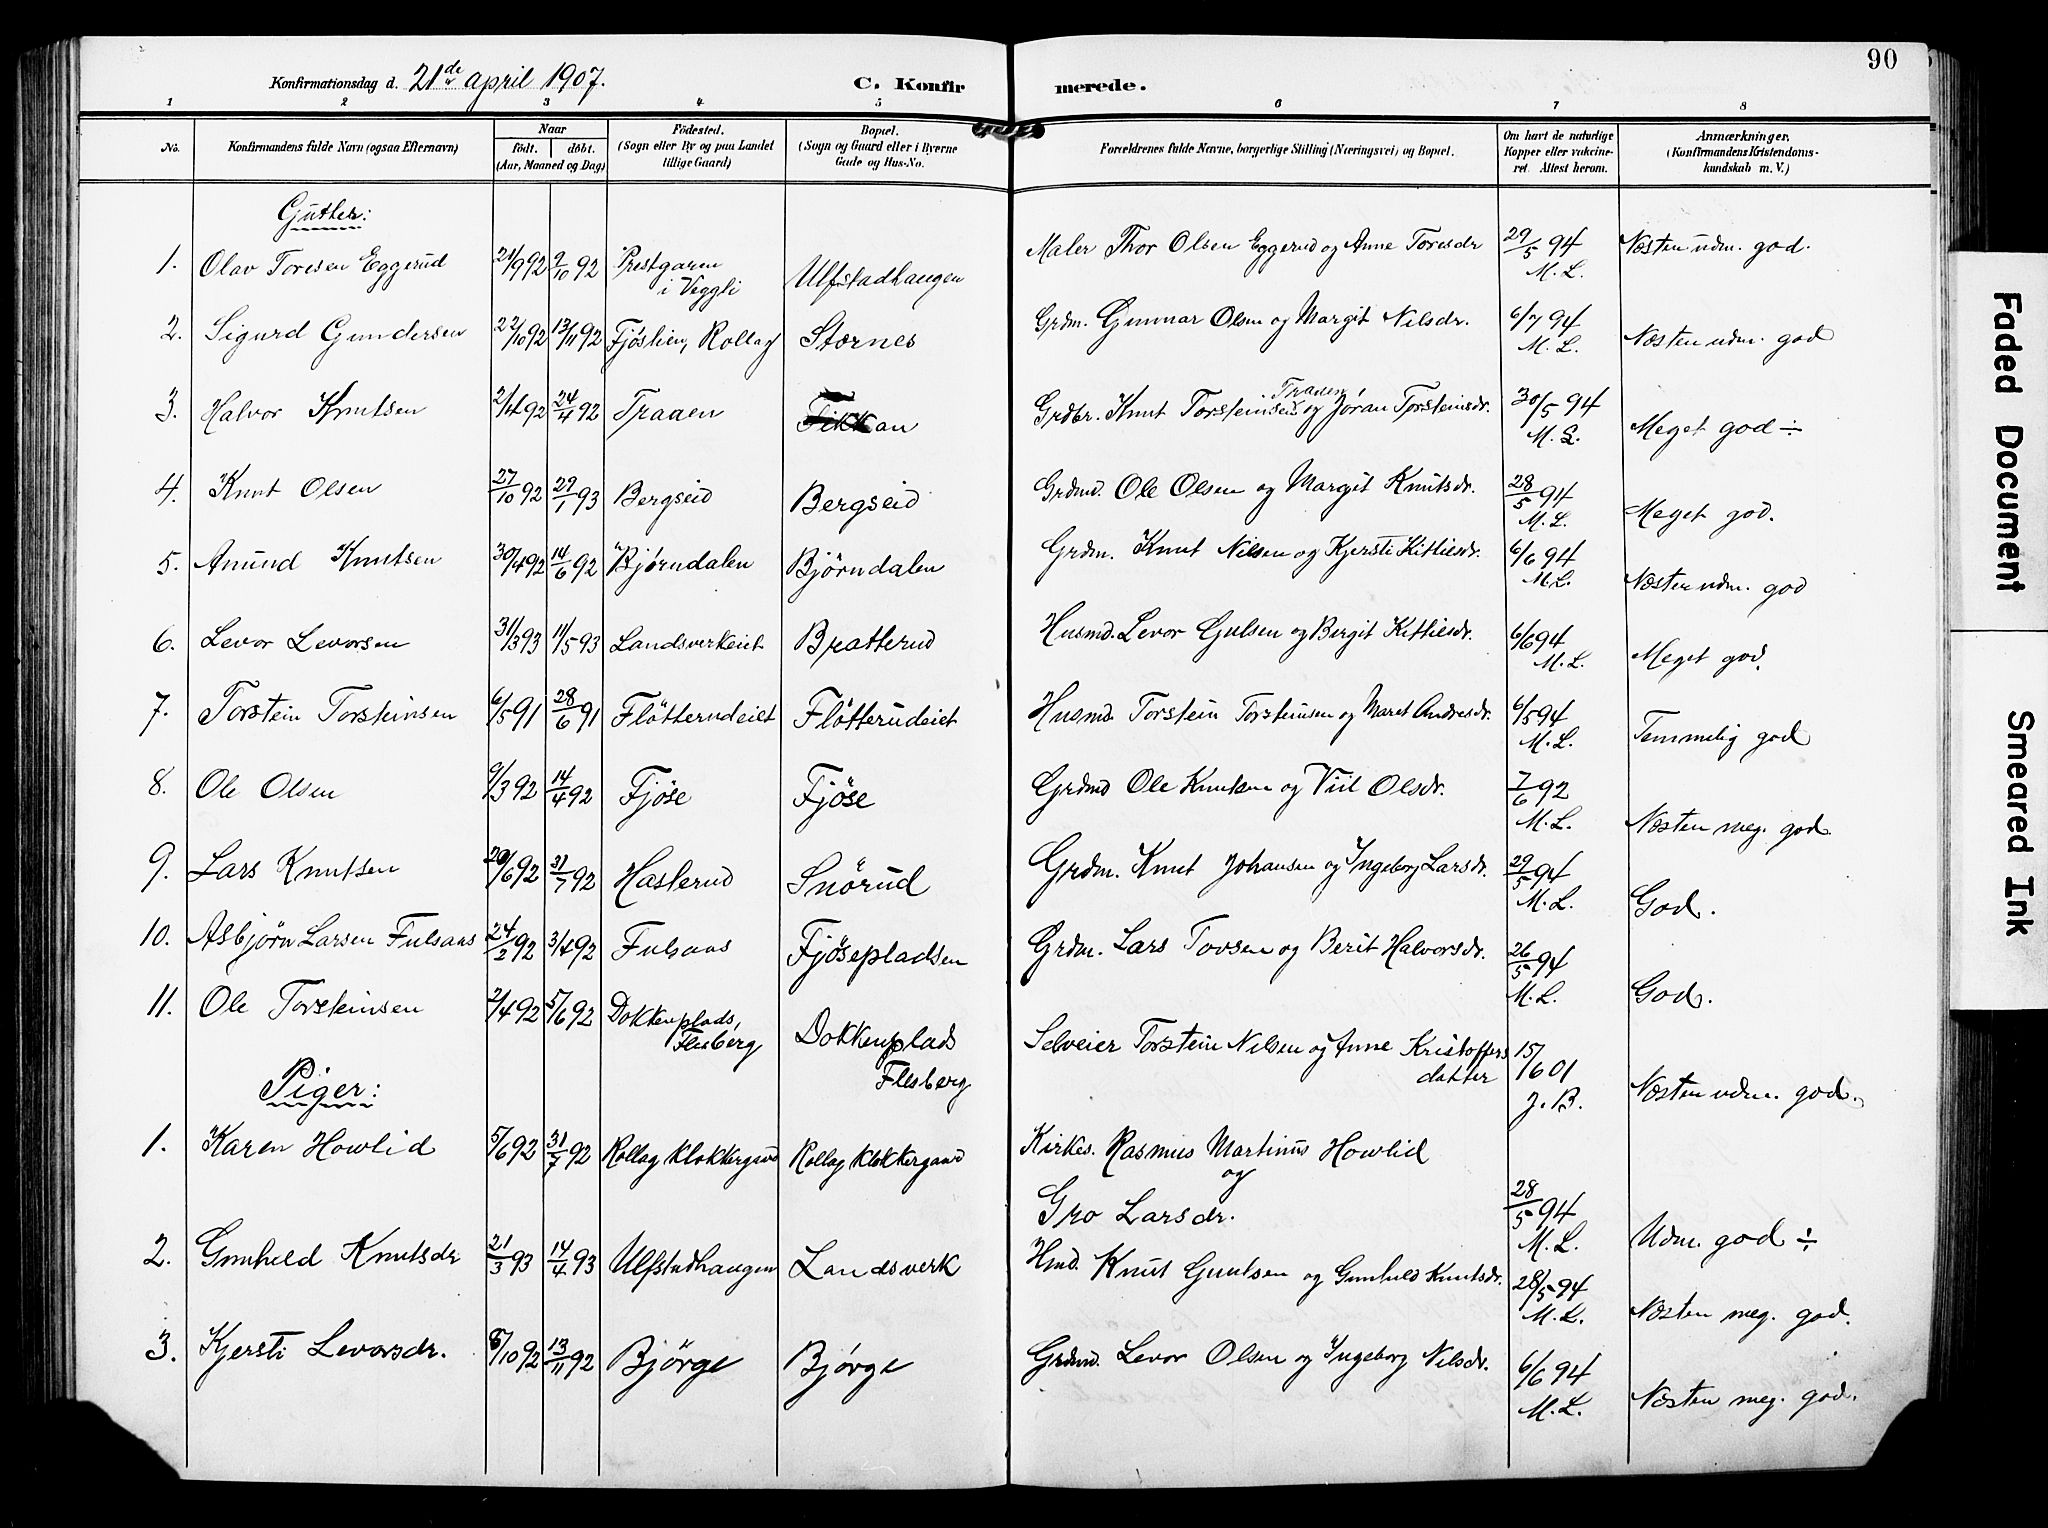 90
Konfirmationsdag d. 21de april 1907. C. Konfirmerede.
1 2 3 4 5 6 7 8
No. Konfirmandens fulde Navn (ogsaa Efternavn) Naar født. døbt. (Aar, Maaned og Dag) Fødested. (Sogn eller By og paa Landet tillige Gaard) Bopæl. (Sogn og Gaard eller i Byerne Gade og Hus-No. Forældrenes fulde Navne, borgerlige Stilling (Næringsvei) og Bopæl. Om havt de naturlige Kopper eller vakcineret. Attest herom. Anmærkninger. (Konfirmandens Kristendomskundskab m. V.)
Gutter:
1. Olav Toresen Eggerud 21/9 92 9/10 92 Prestgarden i Veggli Ulfstadhaugen Maler Thor Olsen Eggerud og Anne Toresdr 29/5 94 M. L. Næsten udm. god.
2. Sigurd Gundersen 22/10 92 13/11 92 Fjøslien, Rollag Stornes Grdm. Gunnar Olsen og Margit Nilsdr. 6/7 94 M. L. Næsten udm. god
3. Halvor Knutsen 2/4 92 24/4 92 Traaen Fikkan Grdbr. Knut Torsteinsen Traaen og Jøran Torsteinsdr. 30/5 94 M. L. Meget god ÷
4. Knut Olsen 27/10 92 29/1 93 Bergseid Bergseid Grdmd. Ole Olsen og Margit Knutsdr. 28/5 94 M. L. Meget god.
5. Amund Knutsen 30/4 92 14/6 92 Bjørndalen Bjørndalen Grdm. Knut Nilsen og Kjersti Kittilsdr. 6/6 94 M. L. Næsten udm. god
6. Levor Levorsen 31/3 93 11/5 93 Landsverkeiet Bratterud Husmd. Levor Gulsen og Bergit Kittilsdr. 6/6 94 M. L. Meget god.
7. Torstein Torsteinsen 6/5 91 28/6 91 Fløtterudeiet Fløtterudeiet Husmd. Torstein Torsteinsen og Maret Andresdr. 6/5 94 M. L. Temmelig god
8. Ole Olsen 9/3 92 14/4 92 Fjøse Fjøse Grdmd Ole Knutsen og Viil Olsdr. 7/6 92 M. L. Næsten meg. god.
9. Lars Knutsen 29/6 92 31/7 92 Haslerud Snørud Grdm. Knut Johansen og Ingeborg Larsdr. 29/5 94 M. L. God.
10. Asbjørn Larsen Fulsaas 24/2 92 3/4 92 Fulsaas Fjøsepladsen Grdm. Lars Tovsen og Berit Halvorsdr. 26/5 94 M. L. God.
11. Ole Torsteinsen 2/4 92 5/6 92 Dokkenplads, Flesberg Dokkenplads Flesberg Selveier Torstein Nilsen og Anne Kristoffersdatter 15/6 01 J. B. Næsten udm. god.
Piger:
1. Karen Howlid 5/6 92 31/7 92 Rollag Klokkergaard Rollag Klokkergaard Kirkes. Rasmus Martinus Howlid og Gro Larsdr. 28/5 94 M. L. Udm. god ÷
2. Gunhild Knutsdr 21/3 93 14/4 93 Ulfstadhaugen Landsverk Hmd. Knut Guulsen og Gunhild Knutsdr. 28/5 94 M. L. Næsten meg. god.
3. Kjersti Levorsdr. 8/10 92 13/11 92 Bjørge Bjørge Grdmd. Levor Olsen og Ingeborg Nilsdr. 6/6 94 M. L. Næsten meg. god.
Faded Document
Smeared Ink